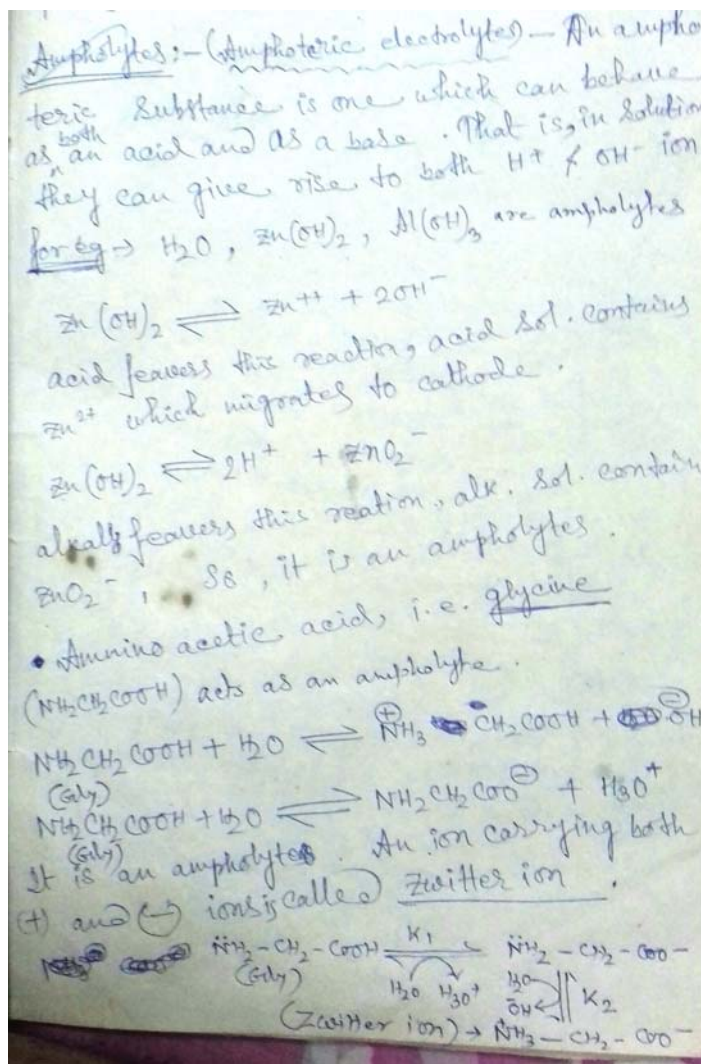 Ampholytes:- (Amphoteric electrolytes) - An ampho
teric substance is one which can behave
as both an acid and as a base. That is, in solution
they can give rise to both H+ & OH- ion
for eg → H2O, Zn(OH)2, Al(OH)3 are ampholytes
Zn(OH)2 ⇌ Zn++ + 2OH-
acid feavers this reaction, acid sol. contains
Zn2+ which migrates to cathode.
Zn(OH)2 ⇌ 2H+ + ZnO2-
feavers this reation, alk. sol. contain
ZnO2-, So, it is an ampholytes.
• Amnino acetic acid, i.e. glycine
(NH2CH2COOH) acts as an ampholyte.
NH2CH2COOH + H2O ⇌ ⊕NH3 CH2COOH + ⊖OH
(Gly)
NH2CH2COOH + H2O ⇌ NH2CH2COO⊖ + H3O+
(Gly)
It is an ampholyte. An ion carrying both
(+) and (-) ions is called zwitter ion.
N̈H2-CH2-COOH ⇌ K1 N̈H2-CH2-COO-
(Gly) H2O H3O+ H2O OH- K2
(Zwitter ion) → +NH3-CH2-COO-